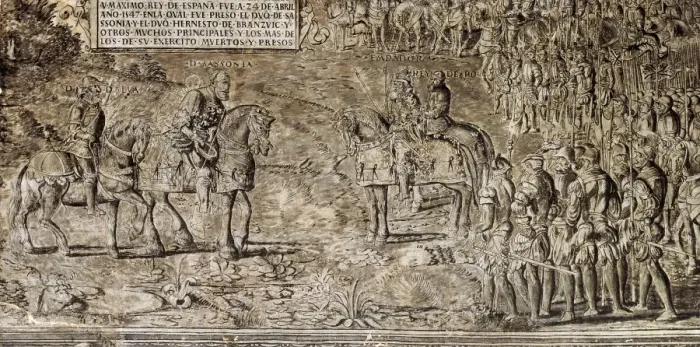 V MAXIMO, REY DE ESPAÑA FVE A 24 DE ABRIL
AÑO 1547 EN LA QVAL FVE PRESO EL DVQ DE SA
SSONIA Y EL DVQ HERNESTO DE BRANZVIC Y
OTROS MVCHOS PRINCIPALES Y LOS MAS DE
LOS DE SV EXERCITO MVERTOS Y PRESOS
D. SASSONIA
EMPADOR
REY